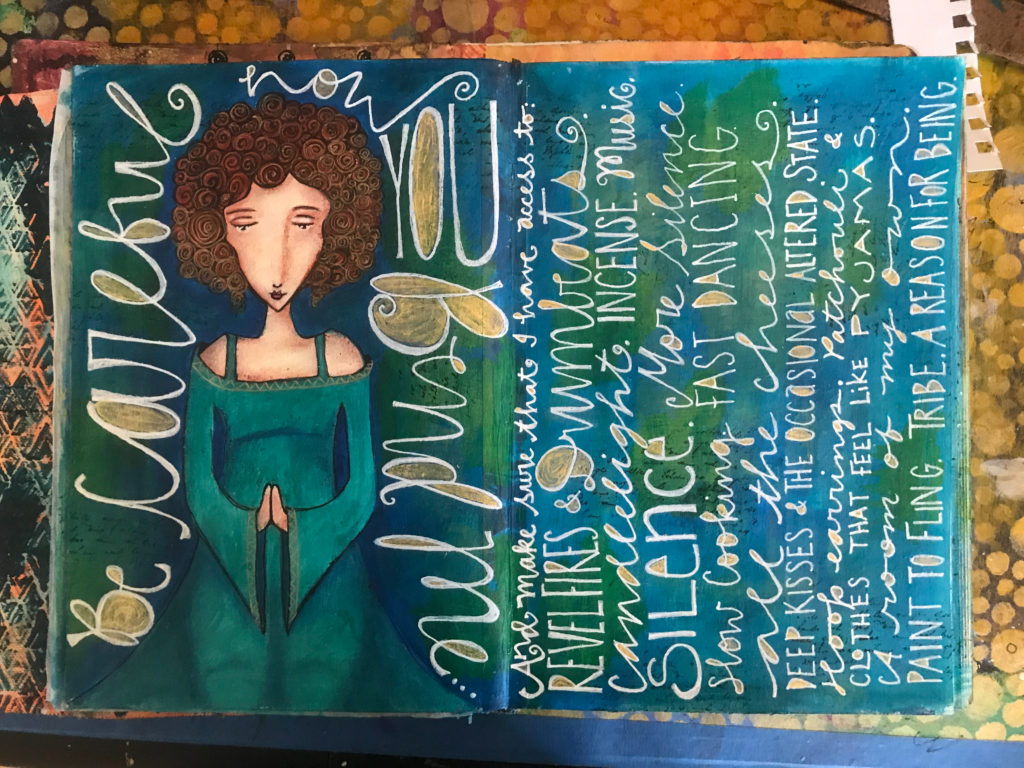 Be Careful
how
YOU
find me...
And make sure that I have access to:
REVELFIRES & Drumbeats.
Candlelight. INCENSE. Music.
SILENCE. More Silence.
Slow Cooking. FAST DANCING.
All the cheeses.
DEEP KISSES & THE OCCASIONAL ALTERED STATE.
Hoop earrings. Patchouli &
CLOTHES THAT FEEL LIKE PYJAMAS.
A room of my own.
PAINT TO FLING. TRIBE. A REASON FOR BEING